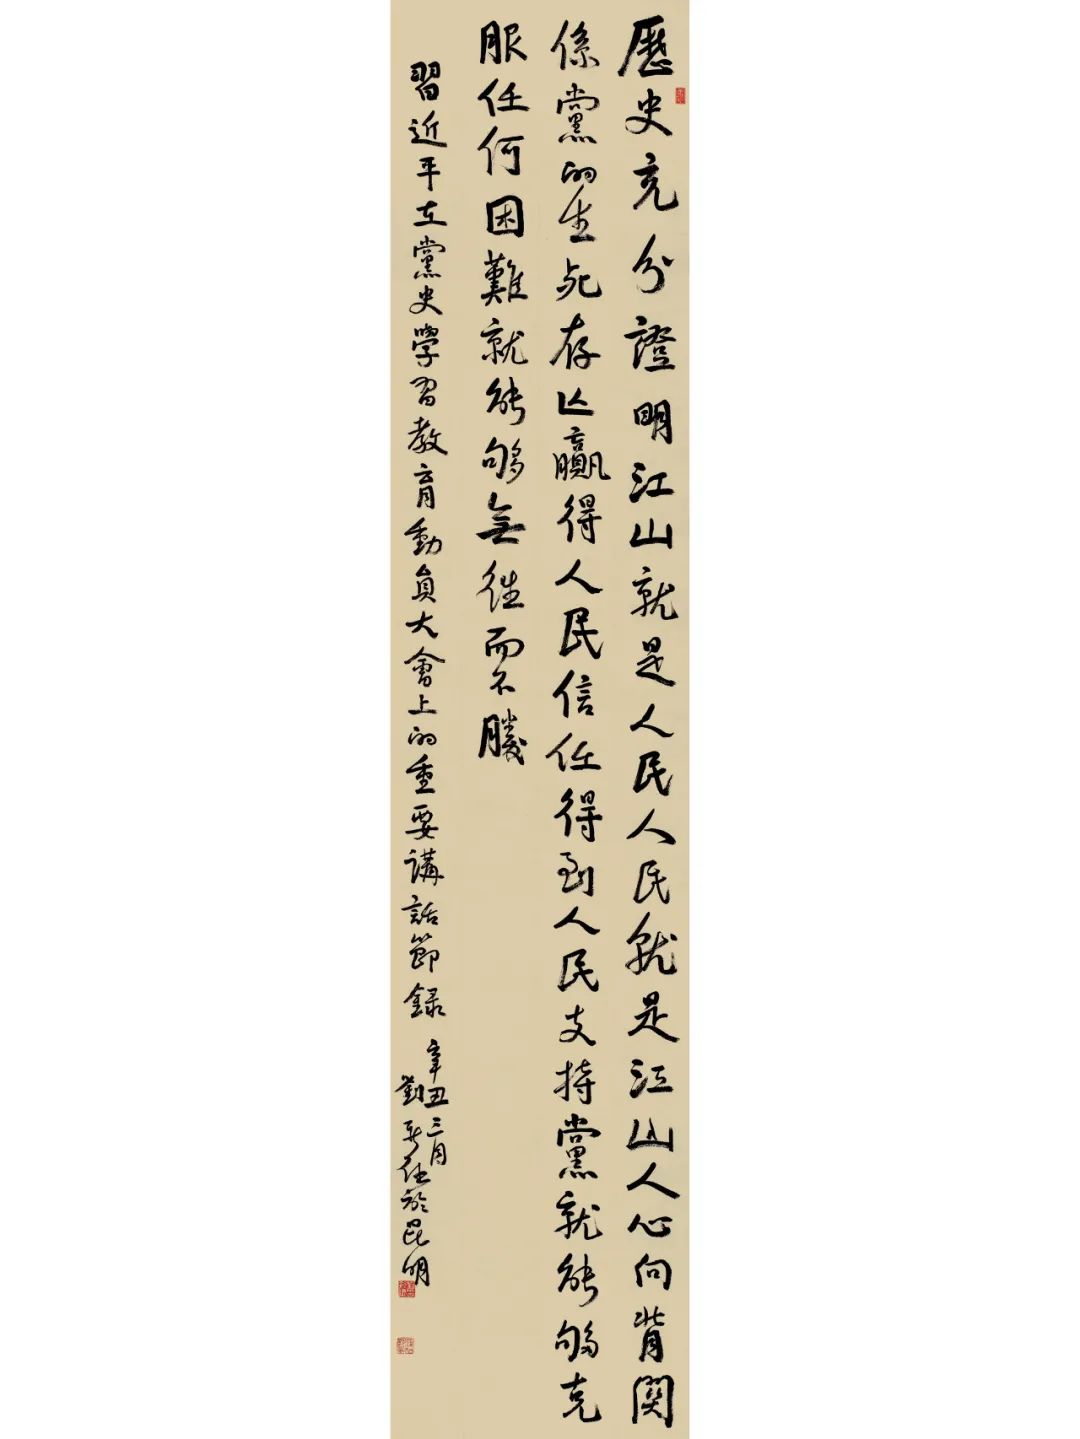 歷史充分證明江山就是人民人民就是江山人心向背関
係黨的生死存亡贏得人民信任得到人民支持黨就能够克
服任何困難就能够無往而不勝
習近平在黨史學習教育動員大會上的重要講話節録
辛丑三月
於昆明